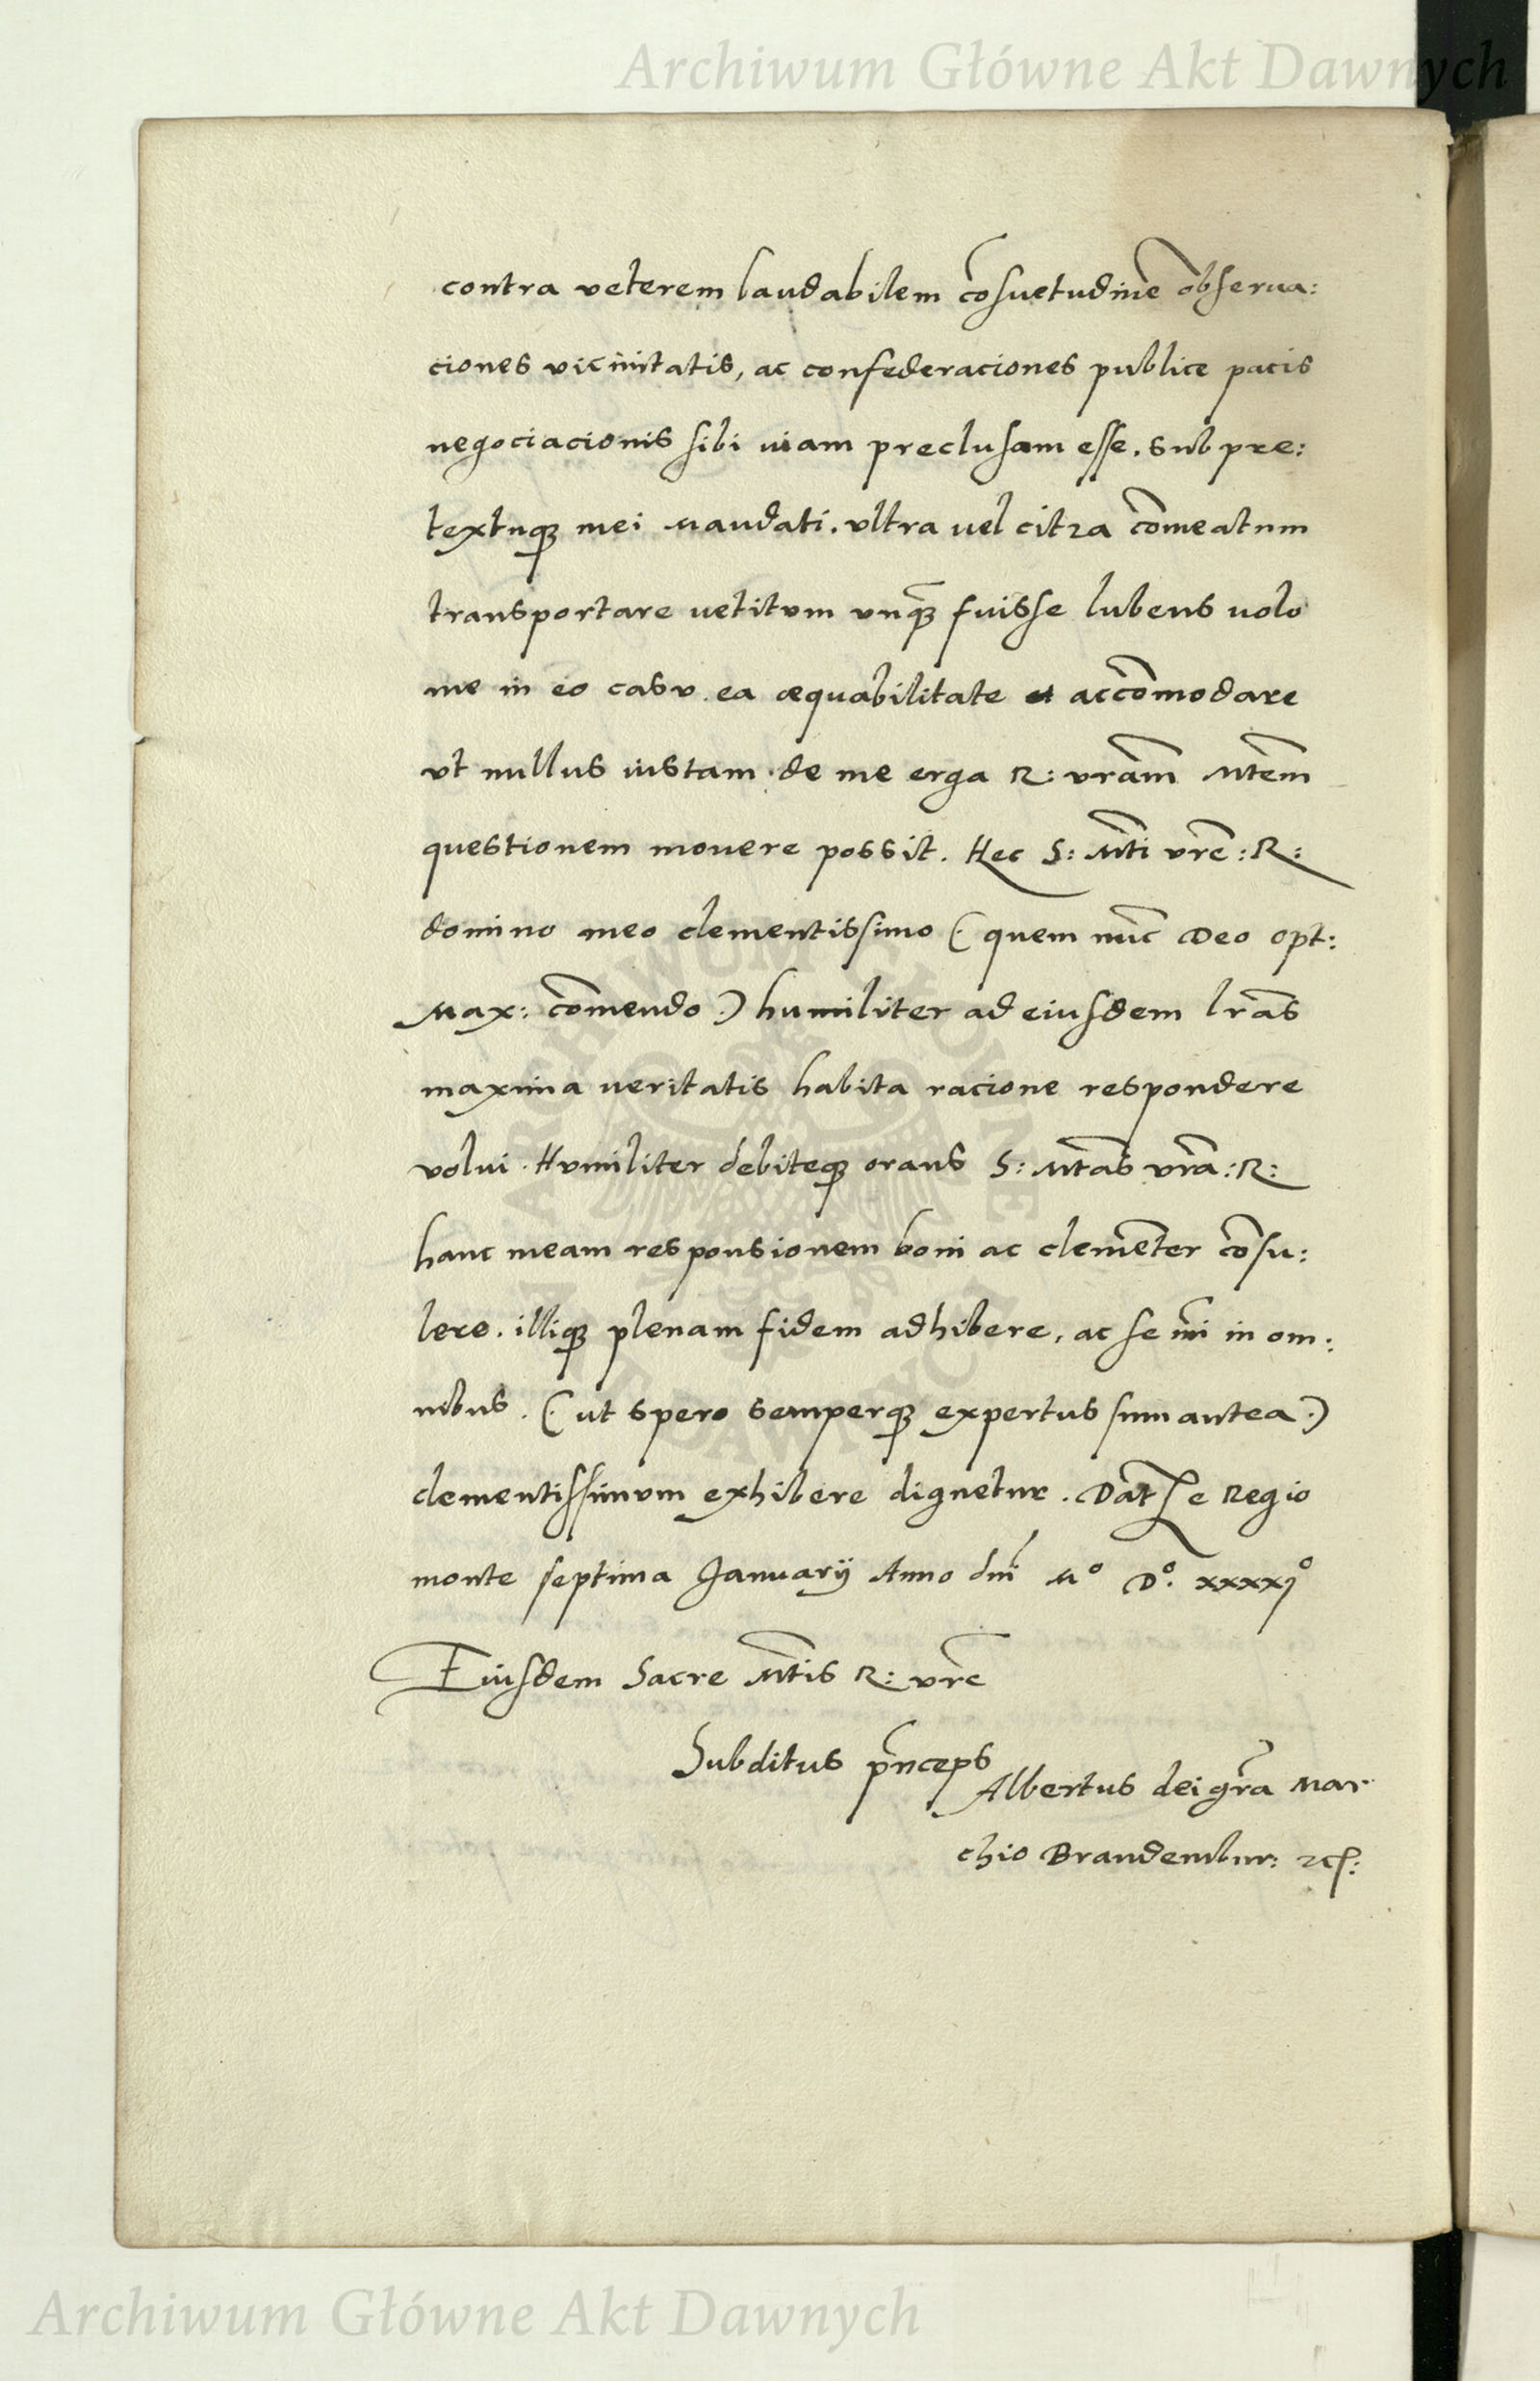 Archiwum Główne Akt Dawnych
contra veterem laudabilem cōsuetudinē obserua:
ciones vicinitatis, ac confederaciones publice pacis
negociacionis sibi uiam preclusam esse. sub pre:
textuqꝫ mei Mandati. vltra uel citra cōmeatum
transportare uetitum vnqꝫ fuisse lubens uolo
me in eo casu ea æquabilitate et accōmodare
vt nullus iustam de me erga R: vrām Mtem̄
questionem mouere possit. Hec S: Mti̅ vrē: R:
domino meo clementissimo (. quem nūc Deo Opt:
Max: cōmendo .) humiliter ad eiusdem lrās
maxima veritatis habita racione respondere
volui. Humiliter debiteqꝫ orans S: Mtās vrā: R:
hanc meam responsionem boni ac clemēter cōsu:
lere. illiqꝫ plenam fidem adhibere, ac se mi̅ in om:
nibus. (. ut spero semperqꝫ expertus sum antea .)
clementissimum exhibere dignetur. Dat̄ e Regio
monte septima Januarij Anno dni̅ Mº Dº. xxxxjº
Eiusdem Sacre Mti̅s R: vrē
Subditus pn̄ceps
Albertus dei grā Mar
chio Brandembur: ꝛcʃ:
Archiwum Główne Akt Dawnych